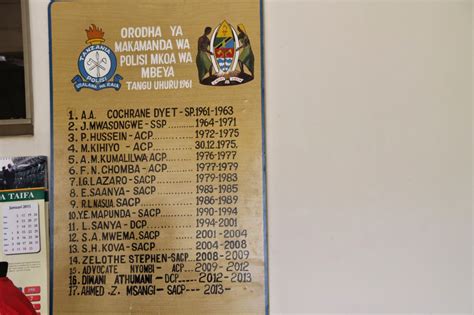 ORODHA YA
MAKAMANDA WA
POLISI MKOA WA
MBEYA
TANGU UHURU 1961
TANZANIA
POLISI
USALAMA WA RAIA
1. A.A. COCHRANE DYET - SP.1961-1963
2. J.MWASONGWE - SSP 1964-1971
3. P. HUSSEIN - ACP 1972-1975
4. M.KIHIYO - ACP 30.12.1975.
5. A.M.KUMALILWA ACP 1976-1977
6. F.N.CHOMBA - ACP 1977-1979
7. I.G.LAZARO - SACP 1979-1983
8. E.SAANYA - SACP 1983-1985
9. R.L.NASUA. SACP 1986-1989
10.Y.E MAPUNDA - SACP 1990-1994
11. L. SANYA - DCP 1994-2001
12. S.A.MWEMA.SACP 2001-2004
13. S.H.KOVA - SACP 2004-2008
14. ZELOTHE STEPHEN-SACP 2008-2009
15. ADVOCATE NYOMBI - ACP 2009-2012
16. DIWANI ATHUMANI - DCP 2012-2013
17. AHMED .Z. MSANGI - SACP 2013-
A TAIFA